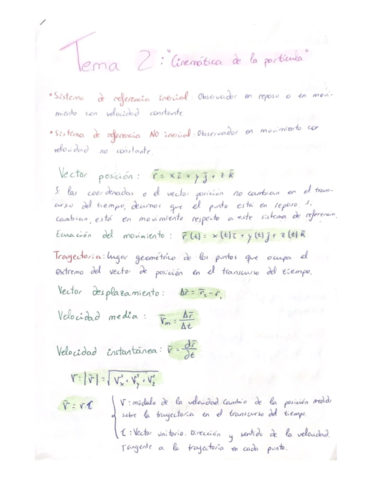 Tema 2: "Cinemática de la partícula"
* Sistema de referencia inercial: Observador en reposo o en movi-
miento con velocidad constante
* Sistema de referencia NO inercial: Observador en movimiento con
velocidad no constante
Vector posición: r̄ = x ī + y j̄ + z k̄
Si las coordenadas o el vector posición no cambian en el trans-
curso del tiempo, decimos que el punto está en reposo. Si
cambian, está en movimiento respecto a este sistema de referencia.
Ecuación del movimiento: r̄(t) = x(t) ī + y(t) j̄ + z(t) k̄
Trayectoria: lugar geométrico de los puntos que ocupa el
extremo del vector de posición en el transcurso del tiempo.
Vector desplazamiento: Δr̄ = r̄₂ - r̄₁
Velocidad media: v̄m = Δr̄/Δt
Velocidad instantánea: v̄ = dr̄/dt
v = |v̄| = √(Vx² + Vy² + Vz²)
v̄ = v τ
v = módulo de la velocidad. Cambio de la posición medido
sobre la trayectoria en el transcurso del tiempo
τ: Vector unitario. Dirección y sentido de la velocidad.
Tangente a la trayectoria en cada punto.